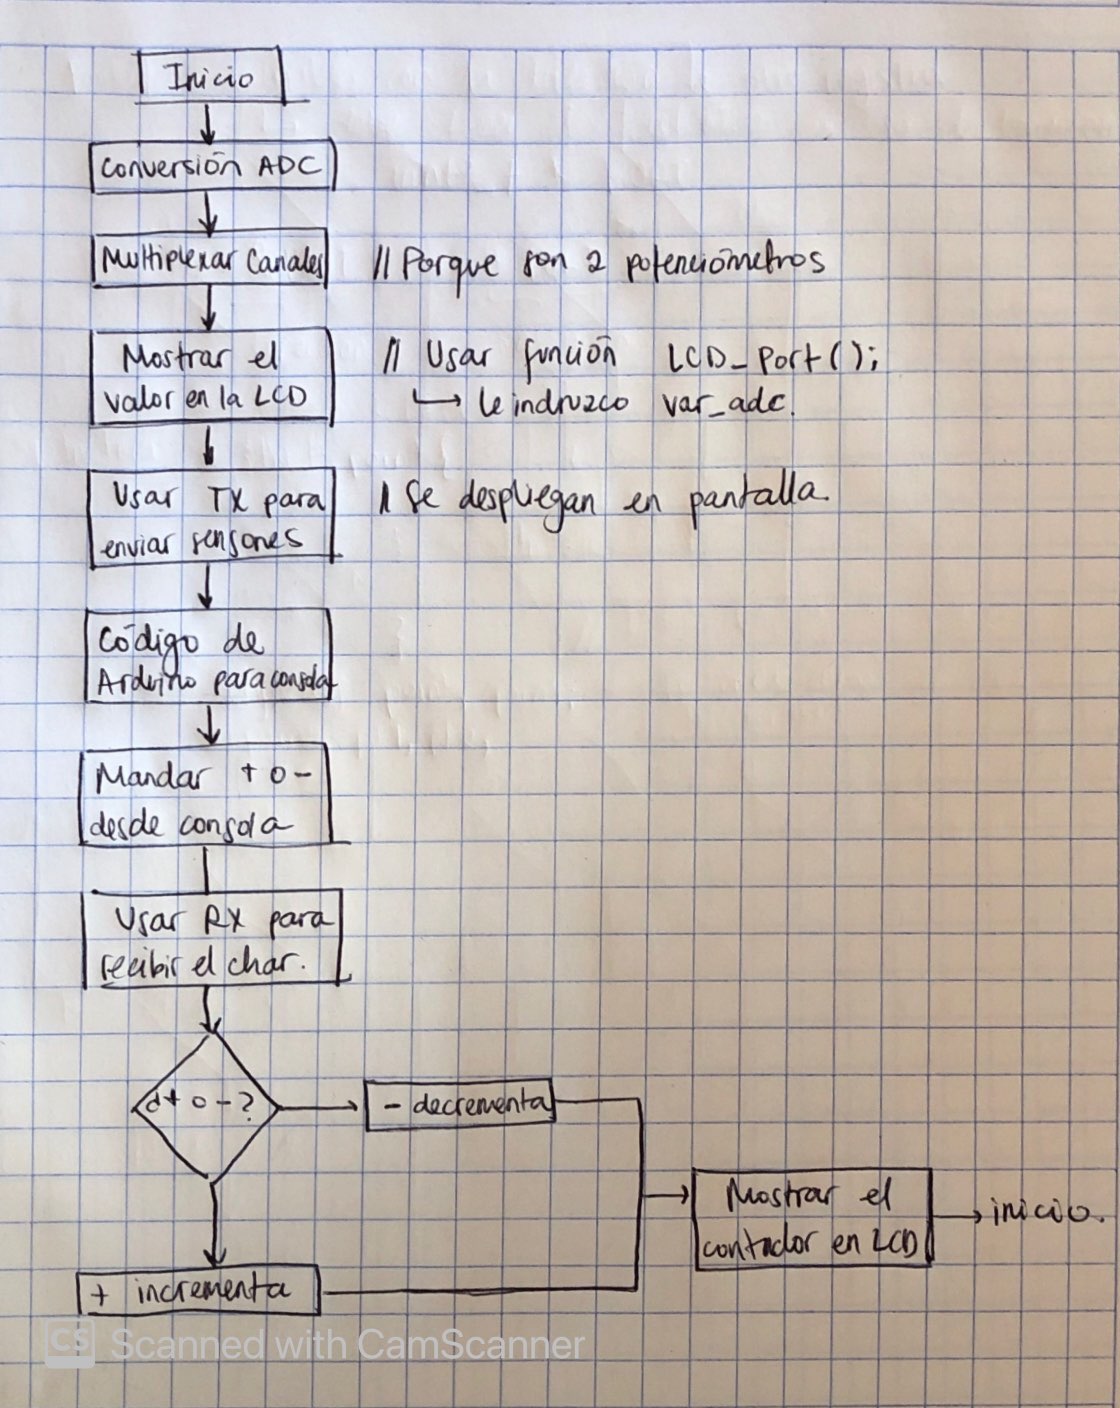 Inicio
Conversión ADC
Multiplexar Canales // Porque son 2 potenciómetros
Mostrar el
valor en la LCD
// Usar función LCD_Port();
le indruzco var_adc.
Usar TX para
enviar sensores
Se despliegan en pantalla.
Código de
Arduino para consola
Mandar + o -
desde consola
Usar RX para
recibir el char.
¿+ o -?
- decrementa
Mostrar el
contador en LCD
inicio.
+ incrementa
CS Scanned with CamScanner